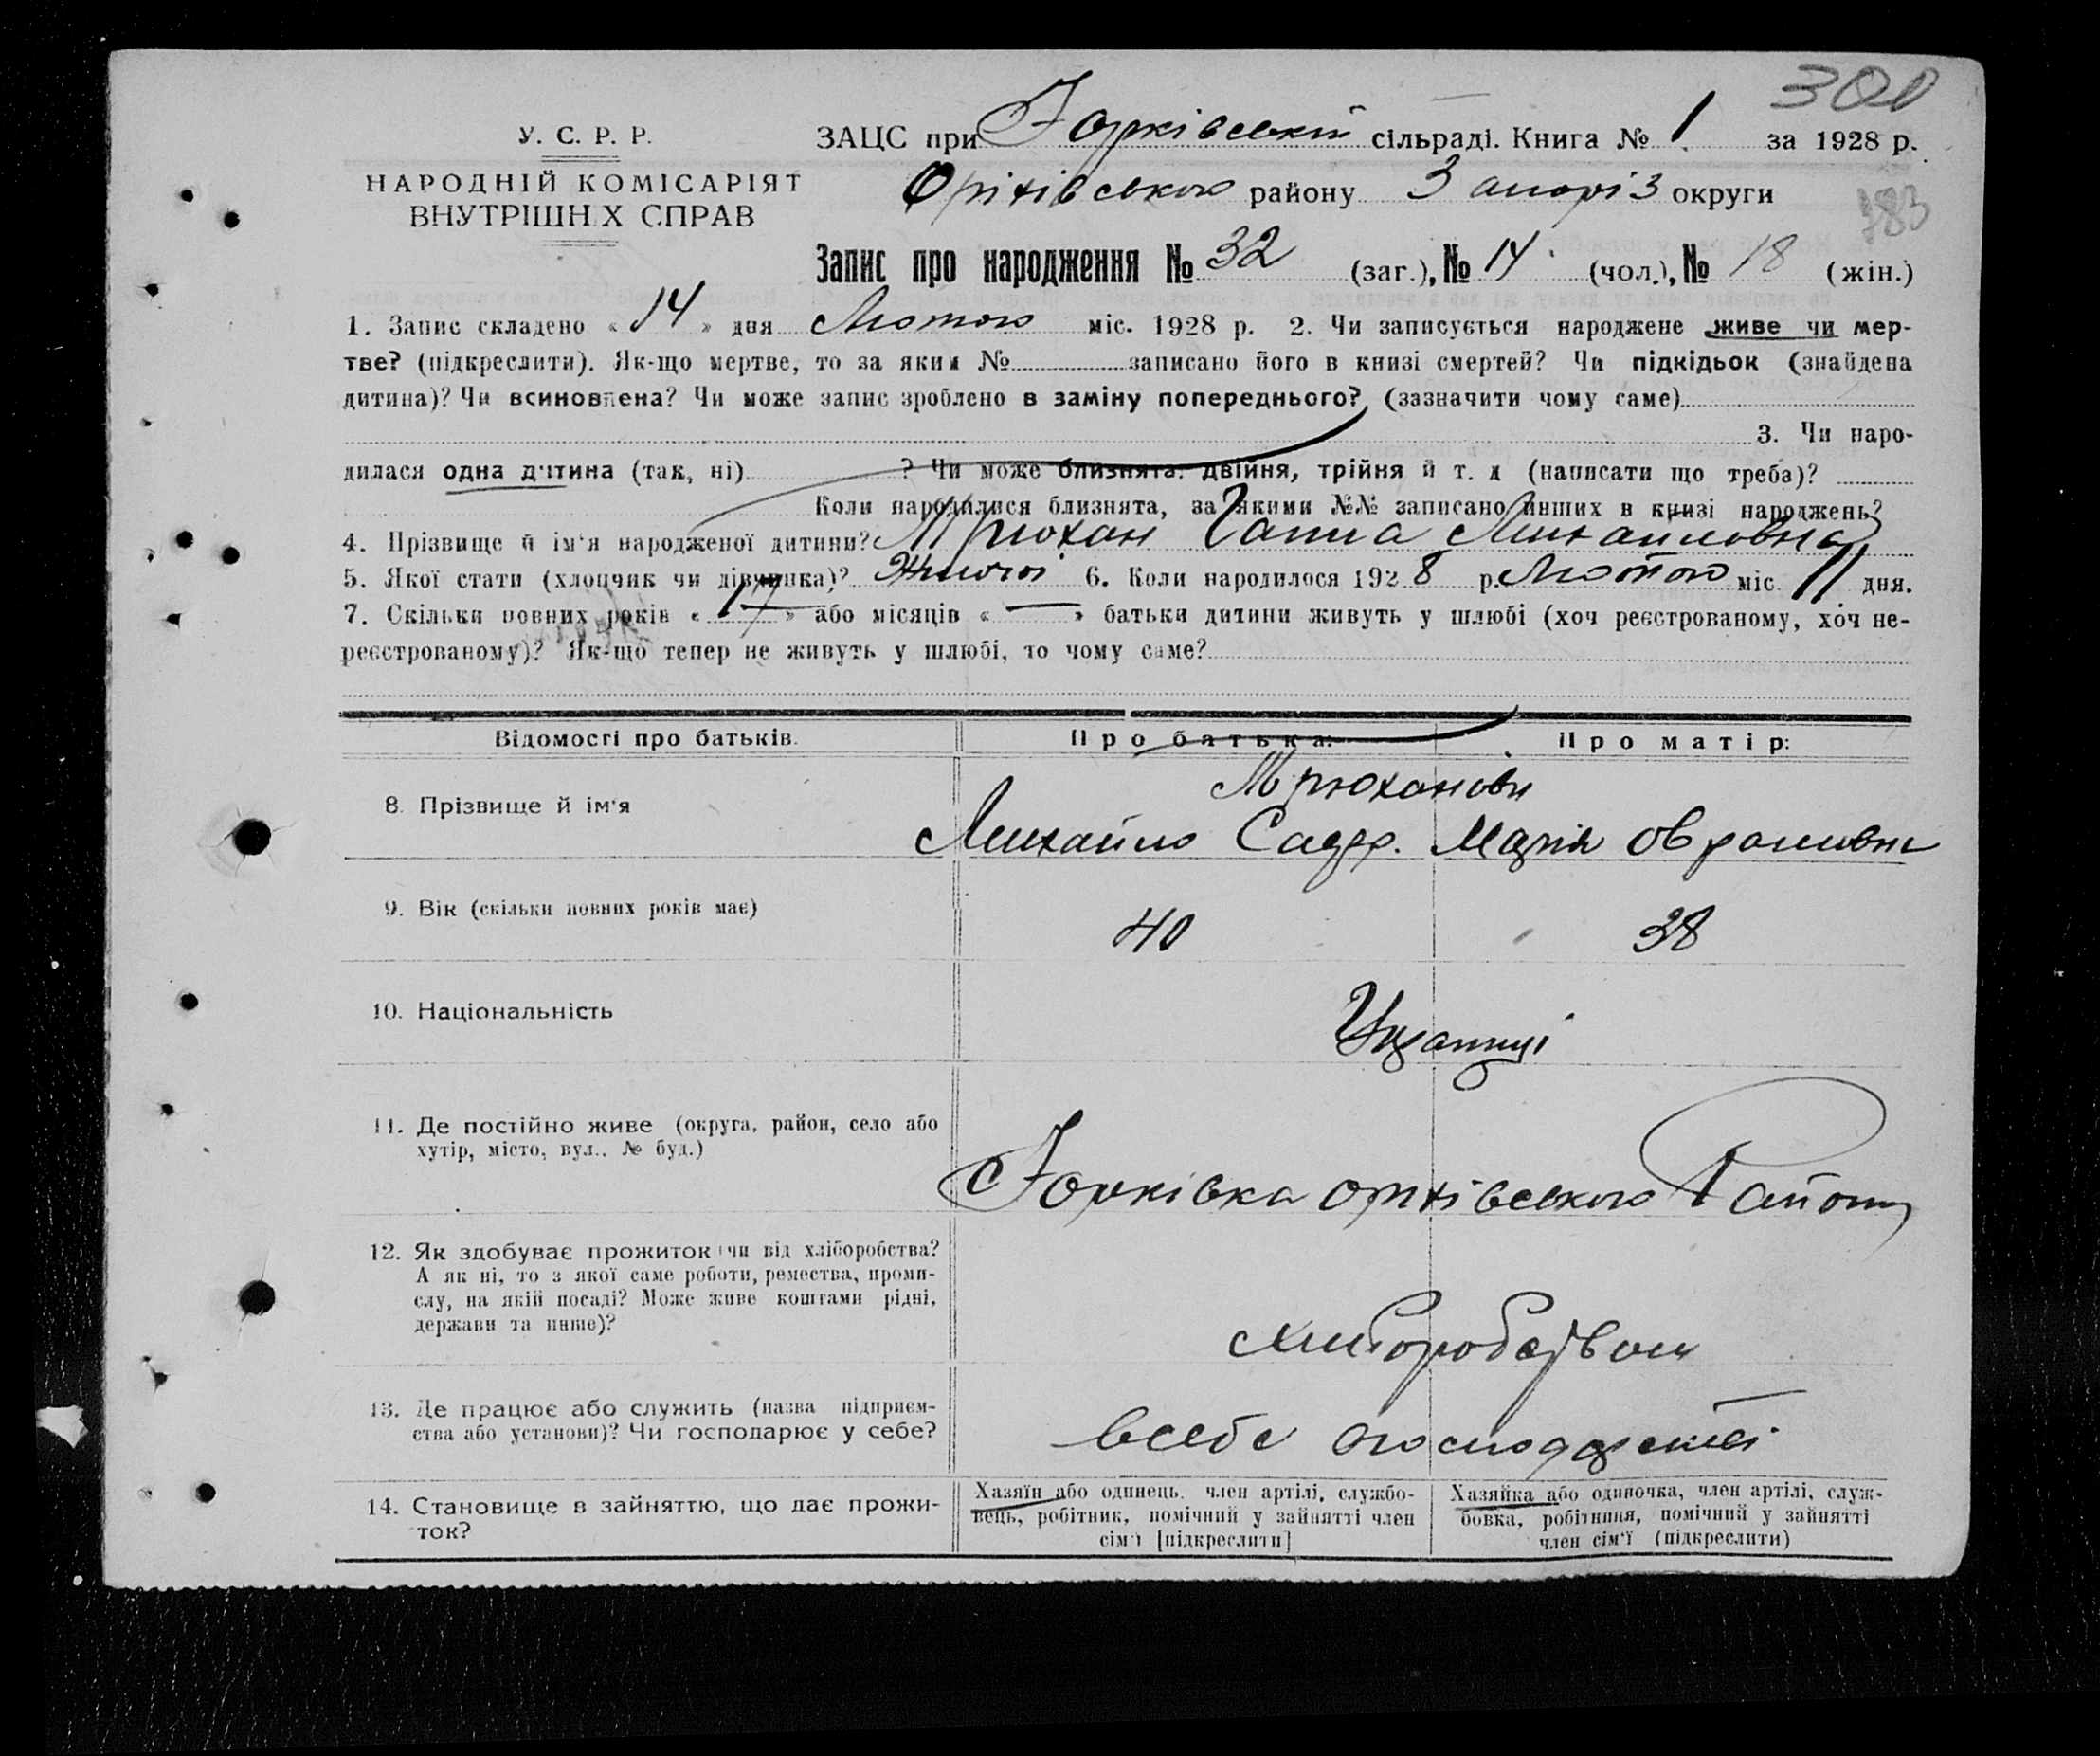 300
У. С. Р. Р.
ЗАЦС при Юрківській сільраді. Книга № 1 за 1928 р.
НАРОДНІЙ КОМІСАРІЯТ
ВНУТРІШН Х СПРАВ
Оріхівського району Запоріз округи
783
Запис про народження № 32 (заг.), № 14 (чол.), № 18 (жін.)
1. Запис складено « 14 » дня Лютого міс. 1928 р. 2. Чи записується народжене живе чи мер-
тве? (підкреслити). Як-що мертве, то за яким № записано його в книзі смертей? Чи підкідьок (знайдена
дитина)? Чи всиновлена? Чи може запис зроблено в заміну попереднього? (зазначити чому саме)
3. Чи наро-
дилася одна дитина (так, ні) ? Чи може близнята: двійня, трійня й т. д (написати що треба)?
Коли народилися близнята, за якими №№ записано инших в книзі народжень?
4. Прізвище й ім'я народженої дитини? Мрюхан Ганна Михайловна
5. Якої стати (хлопчик чи дівчинка)? Жіночої 6. Коли народилося 1928 р. Лютого міс 11 дня.
7. Скільки повних років « 17 » або місяців « — » батьки дитини живуть у шлюбі (хоч реєстрованому, хоч не-
реєстрованому)? Як-що тепер не живуть у шлюбі, то чому саме?
Відомості про батьків. Про батька: Про матір:
Мрюханови
8. Прізвище й ім'я Михайло Сидор. Марія Оврамовна
9. Вік (скільки повних років має) 40 38
10. Національність Украінці
11. Де постійно живе (округа, район, село або
хутір, місто, вул., № буд.)
с Юрківка оріхівського Району
12. Як здобуває прожиток (чи від хліборобства?
А як ні, то з якої саме роботи, ремества, проми-
слу, на якій посаді? Може живе коштами рідні,
держави та инше)?
хліборобством
13. Де працює або служить (назва підприєм-
ства або установи)? Чи господарює у себе?
всебе
14. Становище в зайняттю, що дає прожи-
ток?
Хазяїн або одинець, член артілі, службо-
вець, робітник, помічний у зайнятті член
сім'ї [підкреслити]
Хазяйка або одиночка, член артілі, служ-
бовка, робітниця, помічний у зайнятті
член сім'ї (підкреслити)